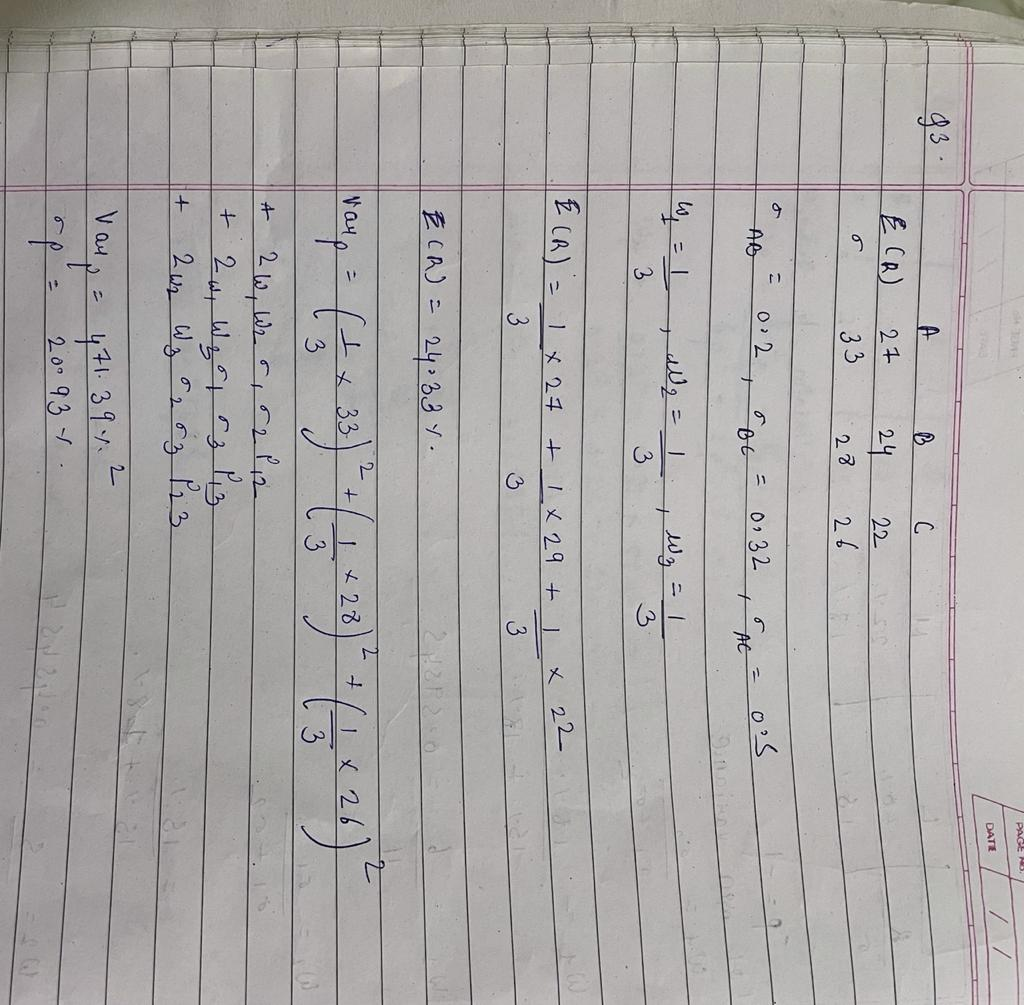 PAGE NO.
DATE / /
Q3.
A B C
E(R) 27 24 22
σ 33 28 26
σAB = 0.2, σBC = 0.32, σAC = 0.5
w1 = 1/3, w2 = 1/3, w3 = 1/3
E(R) = 1/3 × 27 + 1/3 × 29 + 1/3 × 22
E(R) = 24.33 %.
Varp = (1/3 × 33)² + (1/3 × 28)² + (1/3 × 26)²
+ 2w1w2 σ1 σ2 ρ12
+ 2w1w3 σ1 σ3 ρ13
+ 2w2 w3 σ2 σ3 ρ23
Varp = 471.39 %²
σp = 20.93 %.